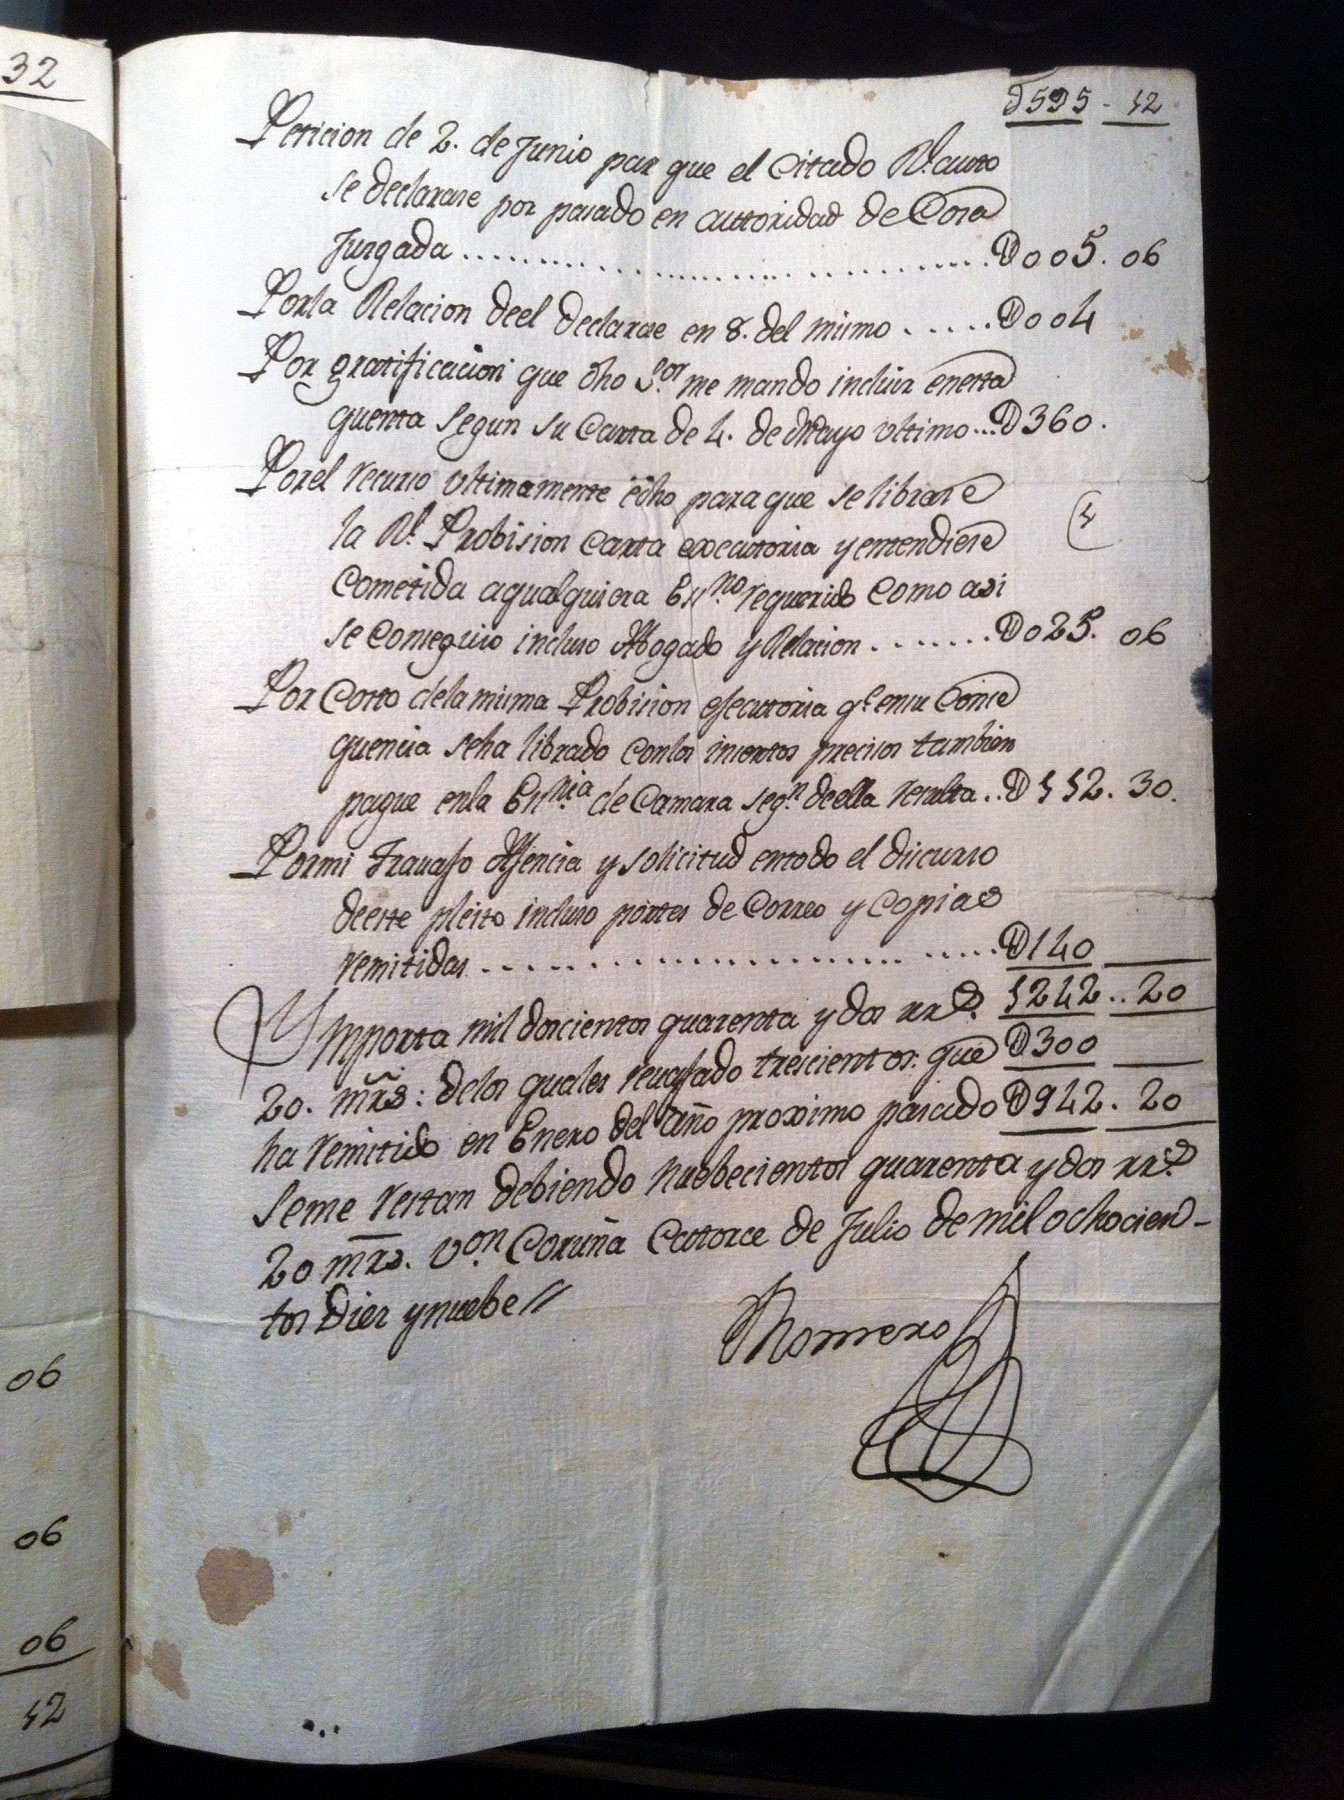 32
D595 - 12
Peticion de 2. de Junio par que el Citado Rl. auto
se declarase por pasado en autoridad de Cosa
Juzgada ........ D005. 06
Porla Relacion deel declarase en 8. del mismo ..... D004
Por gratificacion que dho Sor. me mando incluir enesta
quenta segun su Carta de 4. de Mayo ultimo... D360.
Porel recurso ultimamente êdho para que se librase
la Rl. Probision Carta executoria y entendiese
Cometida aqualquiera Essno. requerido Como asi
se Consiguio incluso Abogado y Relacion ....... D025. 06
Por Costo dela misma Probision esecutoria qe. ensu Conse
quencia seha librado Conlos insertos precisos tambien
pague enla Essnia. de Camara segn. deella resulta .. D112. 30.
Pormi Travajo Ajencia y solicitud entodo el discurso
deeste pleito incluso portes de Correo y Copias
remitidas ........ D140
Ymporta mil doscientos quarenta y dos rrs. 1242 .. 20
20. mrs: delos quales revajado trescientos: que D300
ha remitido en Enero del año proximo pasado D942. 20
Seme restan debiendo nuebecientos quarenta y dos rrs.
20 mrs. von. Coruña Catorce de Julio de mil ochocien-
tos Diez y nuebe //
Romero
06
06
06
12